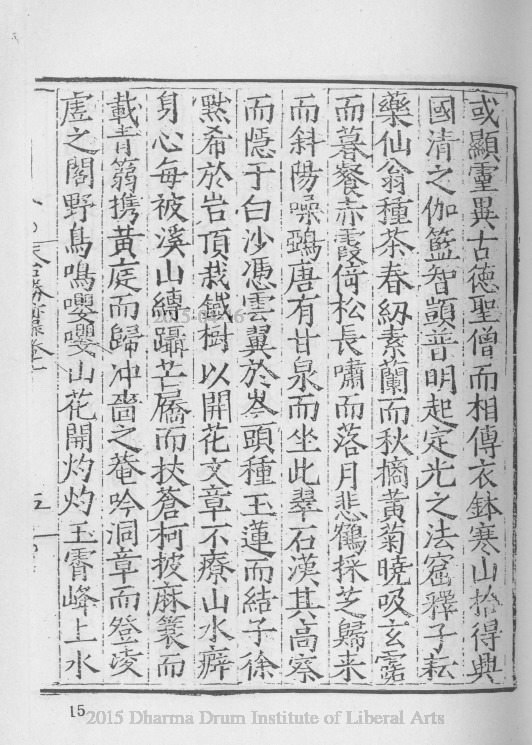 或顯靈異古德聖僧而相傳衣鉢寒山拾得與
國清之伽籃智顗普明起定光之法窟釋子耘
藥仙翁種茶春紉素蘭而秋摘黃菊曉吸玄露
而暮餐赤霞倚松長嘯而落月悲鶴採芝歸来
而斜陽噪鵶唐有甘泉而坐此翠石漢其高察
而隱于白沙憑雲翼於岑頭種玉蓮而結子徐
黙希於岩頂栽鐵樹以開花文章不療山水癖
身心每被溪山縛躡芒屩而扶蒼柯披麻蓑而
載青篛携黃庭而歸冲嗇之菴吟洞章而登凌
虗之閣野鳥鳴嚶嚶山花開灼灼玉霄峰上水
天台勝蹟錄卷一
五
15
2015 Dharma Drum Institute of Liberal Arts